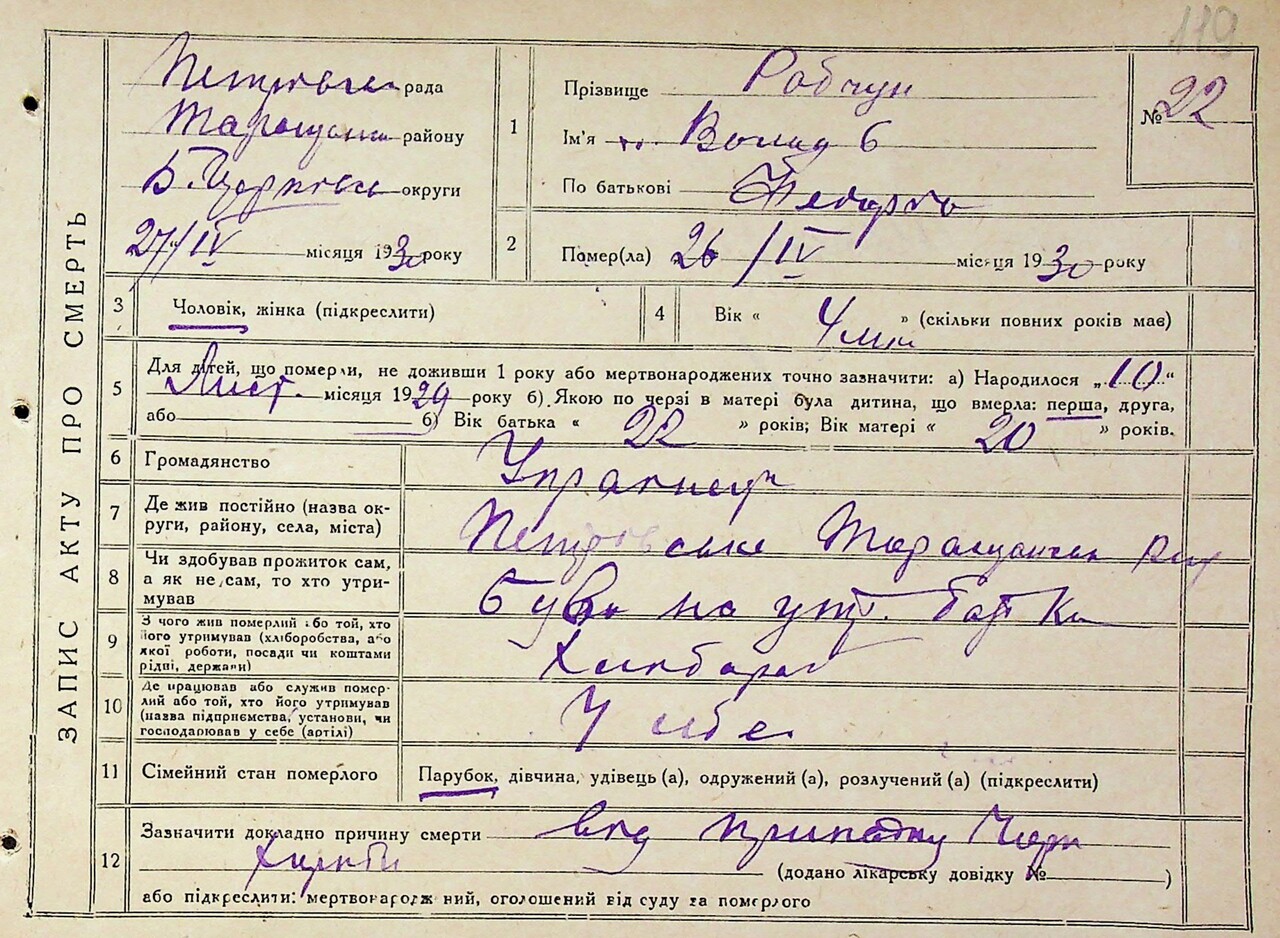 119
ЗАПИС АКТУ ПРО СМЕРТЬ
рада
району
Б. Церківсь округи
27/IV місяця 1930 року
1
Прізвище Робчун
Ім'я
По батькові
№ 22
2
Помер(ла) 26/IV місяця 1930 року
3
Чоловік, жінка (підкреслити)
4
Вік « 4 міс » (скільки повних років мав)
5
Для дітей, що померли, не доживши 1 року або мертвонароджених точно зазначити: а) Народилося „10“
Лист. місяця 1929 року б) Якою по черзі в матері була дитина, що вмерла: перша, друга,
або б) Вік батька « 22 » років; Вік матері « 20 » років.
6
Громадянство Українець
7
Де жив постійно (назва ок-
руги, району, села, міста)
Петровське Таращанськ
8
Чи здобував прожиток сам,
а як не сам, то хто утри-
мував
був на утр. батька
9
З чого жив померлий або той, хто
його утримував (хліборобства, або
якої роботи, посади чи коштами
рідні, держави)
Хлібороб
10
Де працював або служив помер-
лий або той, хто його утримував
(назва підприємства, установи, чи
господарював у себе (артілі)
У себе
11
Сімейний стан померлого
Парубок, дівчина, удівець (а), одружений (а), розлучений (а) (підкреслити)
12
Зазначити докладно причину смерти від припадку
(додано лікарську довідку № )
або підкреслити: мертвонароджений, оголошений від суду за померлого